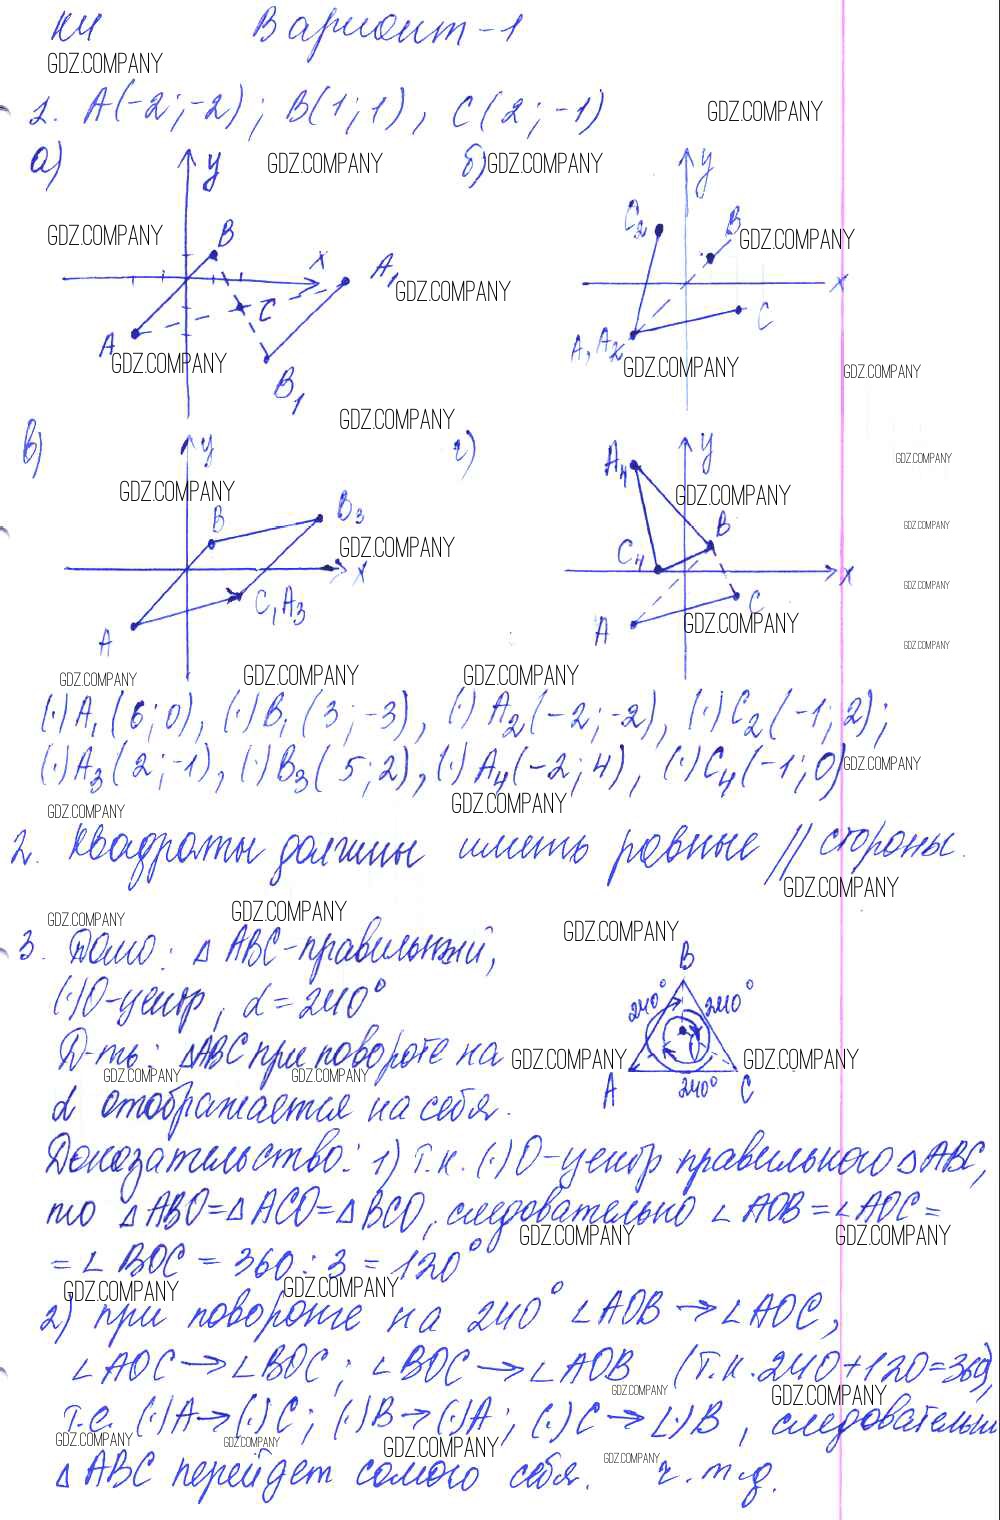 К4 Вариант-1
GDZ.COMPANY
1. A(-2;-2); B(1;1), C(2;-1)
GDZ.COMPANY
а) y б) y
GDZ.COMPANY GDZ.COMPANY
GDZ.COMPANY B C₂ B GDZ.COMPANY
x A₁ x
GDZ.COMPANY
C C
A B₁ A, A₂
GDZ.COMPANY GDZ.COMPANY GDZ.COMPANY
GDZ.COMPANY
в) y г) y
A₄ GDZ.COMPANY
GDZ.COMPANY GDZ.COMPANY
B B₃ C₄ B
GDZ.COMPANY GDZ.COMPANY
x x
GDZ.COMPANY
A C, A₃ A C
GDZ.COMPANY GDZ.COMPANY
GDZ.COMPANY GDZ.COMPANY GDZ.COMPANY
(·)A₁(6;0), (·)B₁(3;-3), (·)A₂(-2;-2), (·)C₂(-1;2);
(·)A₃(2;-1), (·)B₃(5;2), (·)A₄(-2;4), (·)C₄(-1;0)
GDZ.COMPANY
GDZ.COMPANY GDZ.COMPANY
2. Квадраты должны иметь равные // стороны.
GDZ.COMPANY
GDZ.COMPANY GDZ.COMPANY GDZ.COMPANY
3. Дано: △ABC-правильный,
B
(·)O-центр, α=240°
240° 240°
Д-ть: △ABC при повороте на
GDZ.COMPANY GDZ.COMPANY
GDZ.COMPANY GDZ.COMPANY
A 240° C
α отображается на себя.
Доказательство: 1) т.к. (·)O-центр правильного △ABC,
то △ABO=△ACO=△BCO, следовательно ∠AOB=∠AOC=
GDZ.COMPANY GDZ.COMPANY
=∠BOC = 360:3=120°
GDZ.COMPANY GDZ.COMPANY
2) при повороте на 240° ∠AOB→∠AOC,
∠AOC→∠BOC; ∠BOC→∠AOB (т.к. 240+120=360),
GDZ.COMPANY GDZ.COMPANY
т.е. (·)A→(·)C; (·)B→(·)A; (·)C→(·)B, следовательно
GDZ.COMPANY GDZ.COMPANY GDZ.COMPANY
△ABC перейдет самого себя. ч.т.д.
GDZ.COMPANY